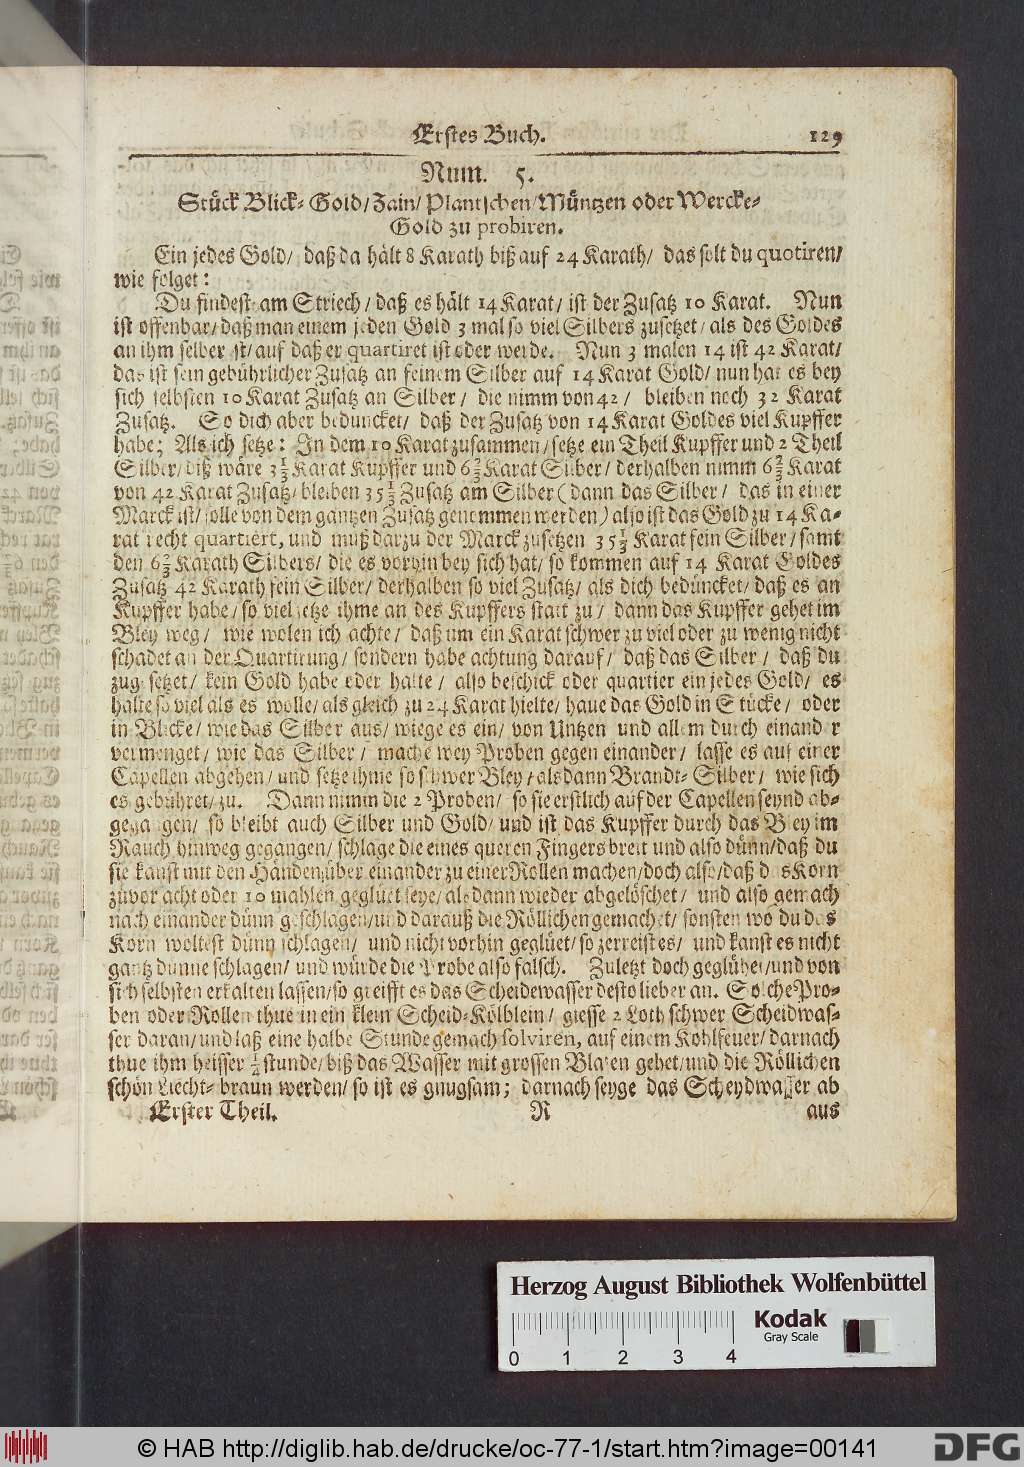 Erstes Buch. 129
Num. 5.
Stück Blick- Gold/ Zain/ Plantschen/ Müntzen oder Wercke-
Gold zu probiren.
Ein jedes Gold/ daß da hält 8 Karath biß auf 24 Karath/ das solt du quotiren/
wie folget:
Du findest am Striech/ daß es hält 14 Karat/ ist der Zusatz 10 Karat. Nun
ist offenbar/ daß man einem jeden Gold 3 mal so viel Silbers zusetzet/ als des Goldes
an ihm selber ist/ auf daß er quartiret ist oder werde. Nun 3 malen 14 ist 42 Karat/
das ist sein gebührlicher Zusatz an feinem Silber auf 14 Karat Gold/ nun hat es bey
sich selbsten 10 Karat Zusatz an Silber/ die nimm von 42/ bleiben noch 32 Karat
Zusatz. So dich aber beduncket/ daß der Zusatz von 14 Karat Goldes viel Kupffer
habe; Als ich setze: In dem 10 Karat zusammen/ setze ein Theil Kupffer und 2 Theil
Silber/ diß wäre 3 1/3 Karat Kupffer und 6 2/3 Karat Silber/ derhalben nimm 6 2/3 Karat
von 42 Karat Zusatz/ bleiben 35 1/3 Zusatz am Silber (dann das Silber/ das in einer
Marck ist/ solle von dem gantzen Zusatz genommen werden) also ist das Gold zu 14 Ka-
rat recht quartiert, und muß darzu der Marck zusetzen 35 1/3 Karat fein Silber/ samt
den 6 2/3 Karath Silbers/ die es vorhin bey sich hat/ so kommen auf 14 Karat Goldes
Zusatz 42 Karath fein Silber/ derhalben so viel Zusatz/ als dich bedüncket/ daß es an
Kupffer habe/ so viel setze ihme an des Kupffers statt zu/ dann das Kupffer gehet im
Bley weg/ wie wolen ich achte/ daß um ein Karat schwer zu viel oder zu wenig nicht
schadet an der Quartirung/ sondern habe achtung darauf/ daß das Silber/ daß du
zugesetzet/ kein Gold habe oder halte/ also beschick oder quartier ein jedes Gold/ es
halte so viel als es wolle/ als gleich zu 24 Karat hielte/ haue das Gold in Stücke/ oder
in Blicke/ wie das Silber aus/ wiege es ein/ von Untzen und allem durch einander
vermenget/ wie das Silber/ mache zwey Proben gegen einander/ lasse es auf einer
Capellen abgehen/ und setze ihme so schwer Bley/ als dann Brandt-Silber/ wie sich
es gebühret/ zu. Dann nimm die 2 Proben/ so sie erstlich auf der Capellen seynd ab-
gegangen/ so bleibt auch Silber und Gold/ und ist das Kupffer durch das Bley im
Rauch hinweg gegangen/ schlage die eines queren Fingers breit und also dünn/ daß du
sie kanst mit den Händen über einander zu einer Rollen machen/ doch also/ daß das Korn
zuvor acht oder 10 mahlen geglüet seye/ als dann wieder abgelöschet/ und also gemach
nach einander dünn geschlagen/ und darauß die Röllichen gemachet/ sonsten wo du das
Korn woltest dünn schlagen/ und nicht vorhin geglüet/ so zerreist es/ und kanst es nicht
gantz dunne schlagen/ und würde die Probe also falsch. Zuletzt doch geglühet/ und von
sich selbsten erkalten lassen/ so greifft es das Scheidewasser desto lieber an. Solche Pro-
ben oder Rollen thue in ein klein Scheid-Kölblein/ giesse 2 Loth schwer Scheidwas-
ser daran/ und laß eine halbe Stunde gemach solviren, auf einem Kohlfeuer/ darnach
thue ihm heisser 1/2 stunde/ biß das Wasser mit grossen Blasen gehet/ und die Röllichen
schön Liecht-braun werden/ so ist es gnugsam; darnach seyge das Scheydwasser ab
Erster Theil. R aus
Herzog August Bibliothek Wolfenbüttel
Kodak
Gray Scale
0 1 2 3 4
© HAB http://diglib.hab.de/drucke/oc-77-1/start.htm?image=00141
DFG